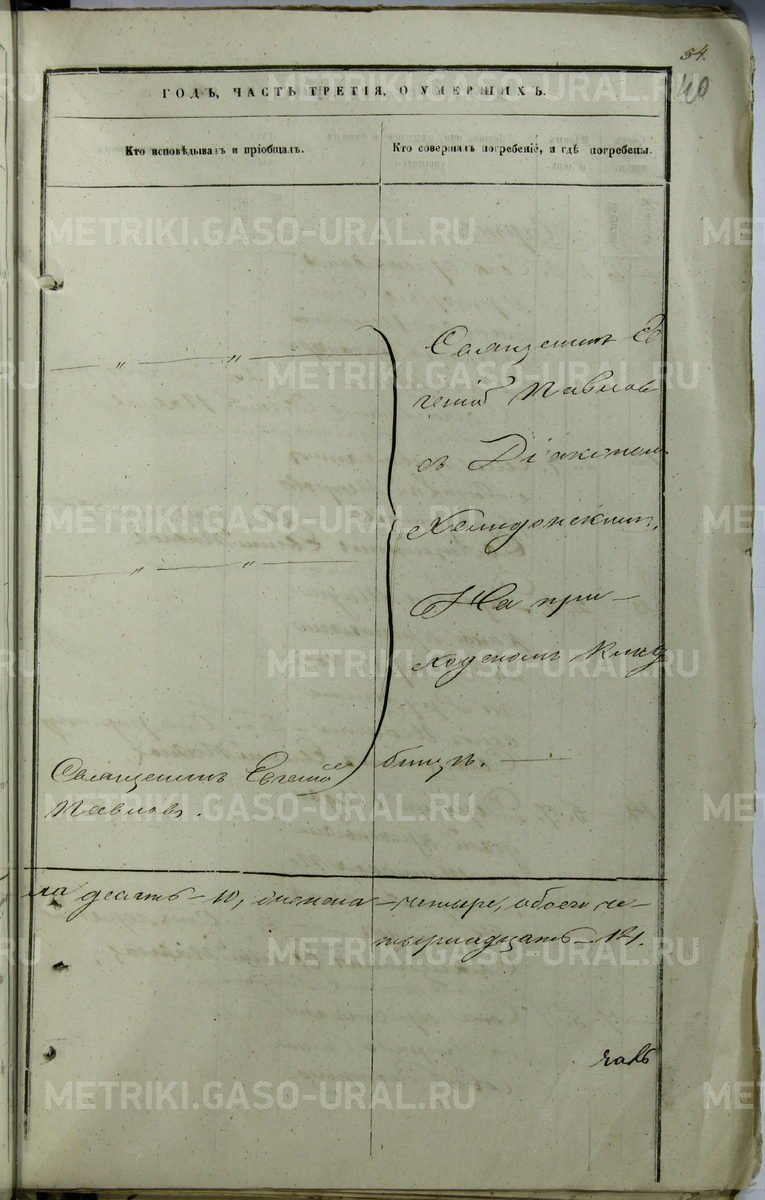 34.
40
ГОДЪ, ЧАСТЬ ТРЕТІЯ, О УМЕРШИХЪ.
Кто исповѣдывалъ и пріобщалъ.
Кто совершалъ погребеніе, и гдѣ погребены.
Священникъ Ев
геній Павловъ
съ Діакономъ
Хелидонскимъ.
На при-
ходскомъ клад
бищѣ.
Священникъ Евгеній
Павловъ.
ла десять - 10, женска - четыре, обоего че-
тырнадцать - 14.
METRIKI.GASO-URAL.RU